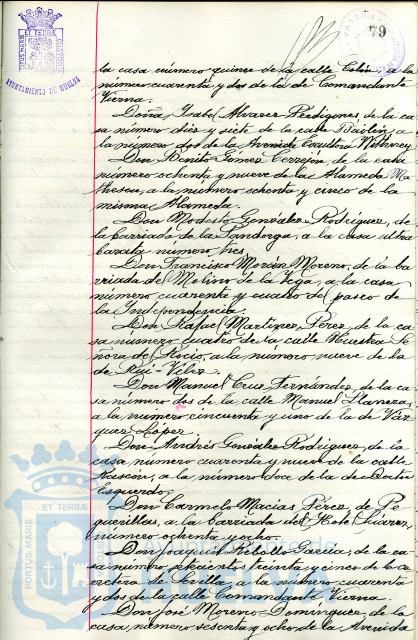 79
AYUNTAMIENTO DE HUELVA
la casa número quince de la calle Colón, a la
número cuarenta y dos de la de Comandante
Vierna.
Doña Isabel Alvarez Perdigones, de la ca
sa número diez y siete de la calle Bailén, a
la número dos de la Avenida Escultora Withney
Don Benito Gómez Cerrejón, de la casa
número ochenta y nueve de la Alameda Ma
theson, a la número ochenta y cinco de la
misma Alameda.
Don Modesto González Rodríguez, de
la barriada de la Pandorga, a la casa
número tres
Don Francisco Morán Moreno, de la ba
rriada del Molino de la Vega, a la casa
número cuarenta y cuatro del paseo de
la Independencia.
Don Rafael Martínez Pérez, de la ca
sa número cuatro de la calle Nuestra Se
ñora del Rocío, a la número nueve de la
de Rui-Vélez.
Don Manuel Cruz Fernández, de la ca
sa número dos de la calle Manuel Llaneza,
a la número cincuenta y uno de la de Váz
quez López.
Don Andrés González Rodríguez, de la
casa número cuarenta y nueve de la calle
Rascón, a la número doce de la de Doctor
Esquerdo.
Don Carmelo Macías Pérez, de Pe
guerillas, a la barriada del Hotel Suárez,
número ochenta y ocho.
Don Joaquín Rebollo García, de la ca
sa número y cinco de la ca
rretera de Sevilla, a la número cuarenta
y dos de la calle Comandante Vierna.
Don José Moreno Domínguez, de la
casa número sesenta y ocho de la Avenida
PORTUS MARIS
ET TERRÆ